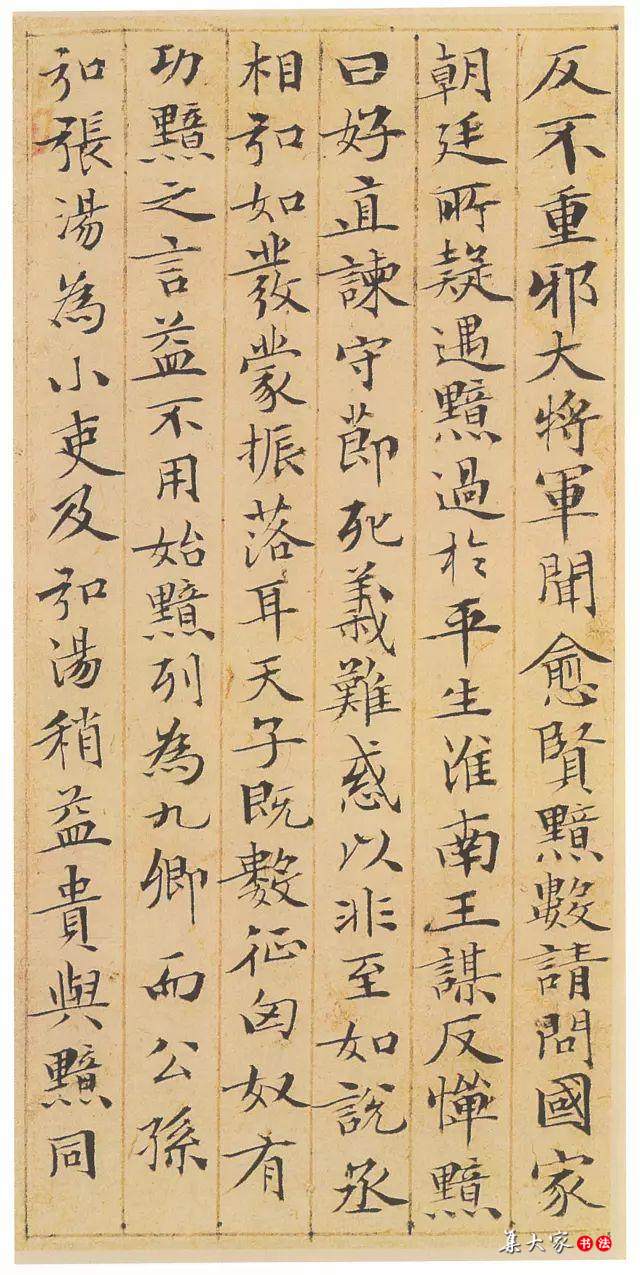 反不重邪大將軍聞愈賢黯數請問國家
朝廷所疑遇黯過於平生淮南王謀反憚黯
曰好直諫守節死義難惑以非至如說丞
相弘如發蒙振落耳天子既數征匈奴有
功黯之言益不用始黯列為九卿而公孫
弘張湯為小吏及弘湯稍益貴與黯同
集大家书法